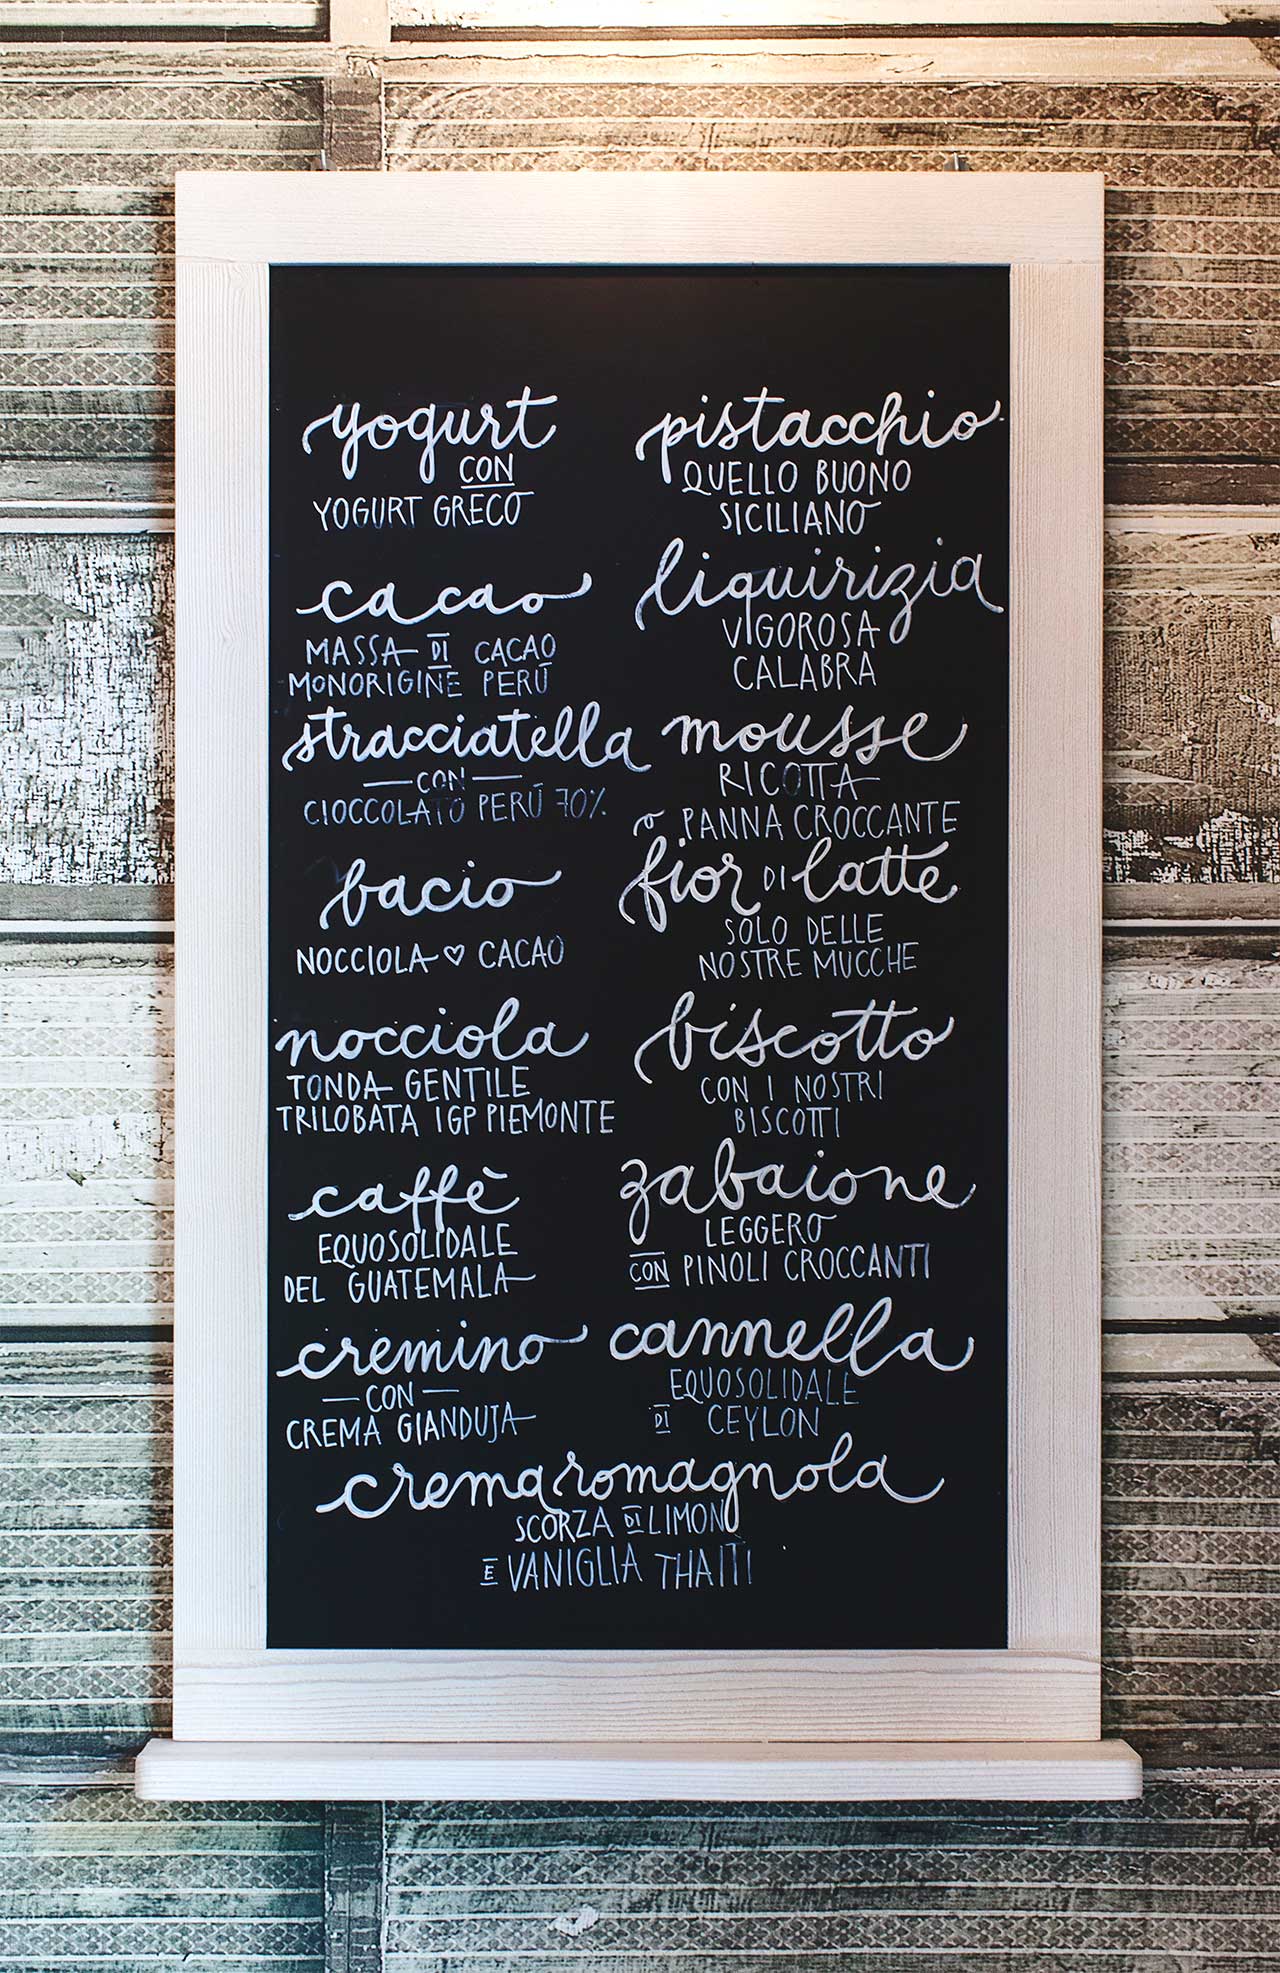 yogurt
CON
YOGURT GRECO
cacao
MASSA DI CACAO
MONORIGINE PERÙ
stracciatella
CON
CIOCCOLATO PERÙ 70%
bacio
NOCCIOLA ♡ CACAO
nocciola
TONDA GENTILE
TRILOBATA IGP PIEMONTE
caffè
EQUOSOLIDALE
DEL GUATEMALA
cremino
CON
CREMA GIANDUJA
pistacchio
QUELLO BUONO
SICILIANO
liquirizia
VIGOROSA
CALABRA
mousse
RICOTTA
o PANNA CROCCANTE
fior DI latte
SOLO DELLE
NOSTRE MUCCHE
biscotto
CON I NOSTRI
BISCOTTI
zabaione
LEGGERO
CON PINOLI CROCCANTI
cannella
EQUOSOLIDALE
DI CEYLON
crema romagnola
SCORZA DI LIMON
E VANIGLIA THAITI